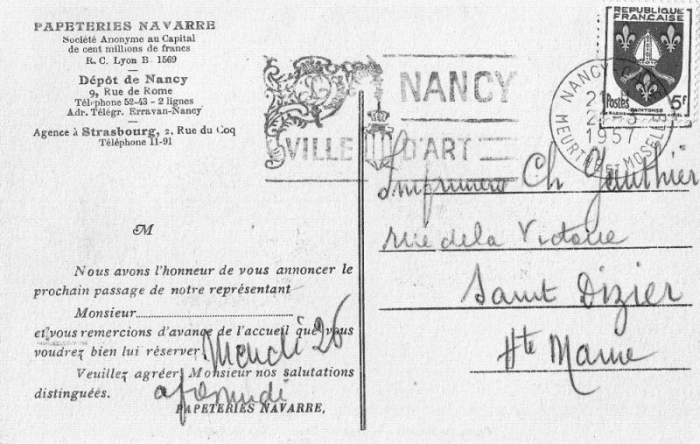 PAPETERIES NAVARRE
Société Anonyme au Capital
de cent millions de francs
R. C. Lyon B 1569
Dépôt de Nancy
9, Rue de Rome
Téléphone 52-43 - 2 lignes
Adr. Télégr. Erravan-Nancy
Agence à Strasbourg, 2, Rue du Coq
Téléphone 11-91
M
Nous avons l'honneur de vous annoncer le
prochain passage de notre représentant
Monsieur
et vous remercions d'avance de l'accueil que vous
voudrez bien lui réserver.
Mardi 26
Veuillez agréer Monsieur nos salutations
distinguées.
PAPETERIES NAVARRE.
NANCY
VILLE D'ART
NANCY
1957
MEURTHE ET MOSELLE
REPUBLIQUE
FRANÇAISE
Postes 5F
SAINTONGE
Imprimerie Ch Gauthier
rue de la Victoire
Saint Dizier
Hte Marne